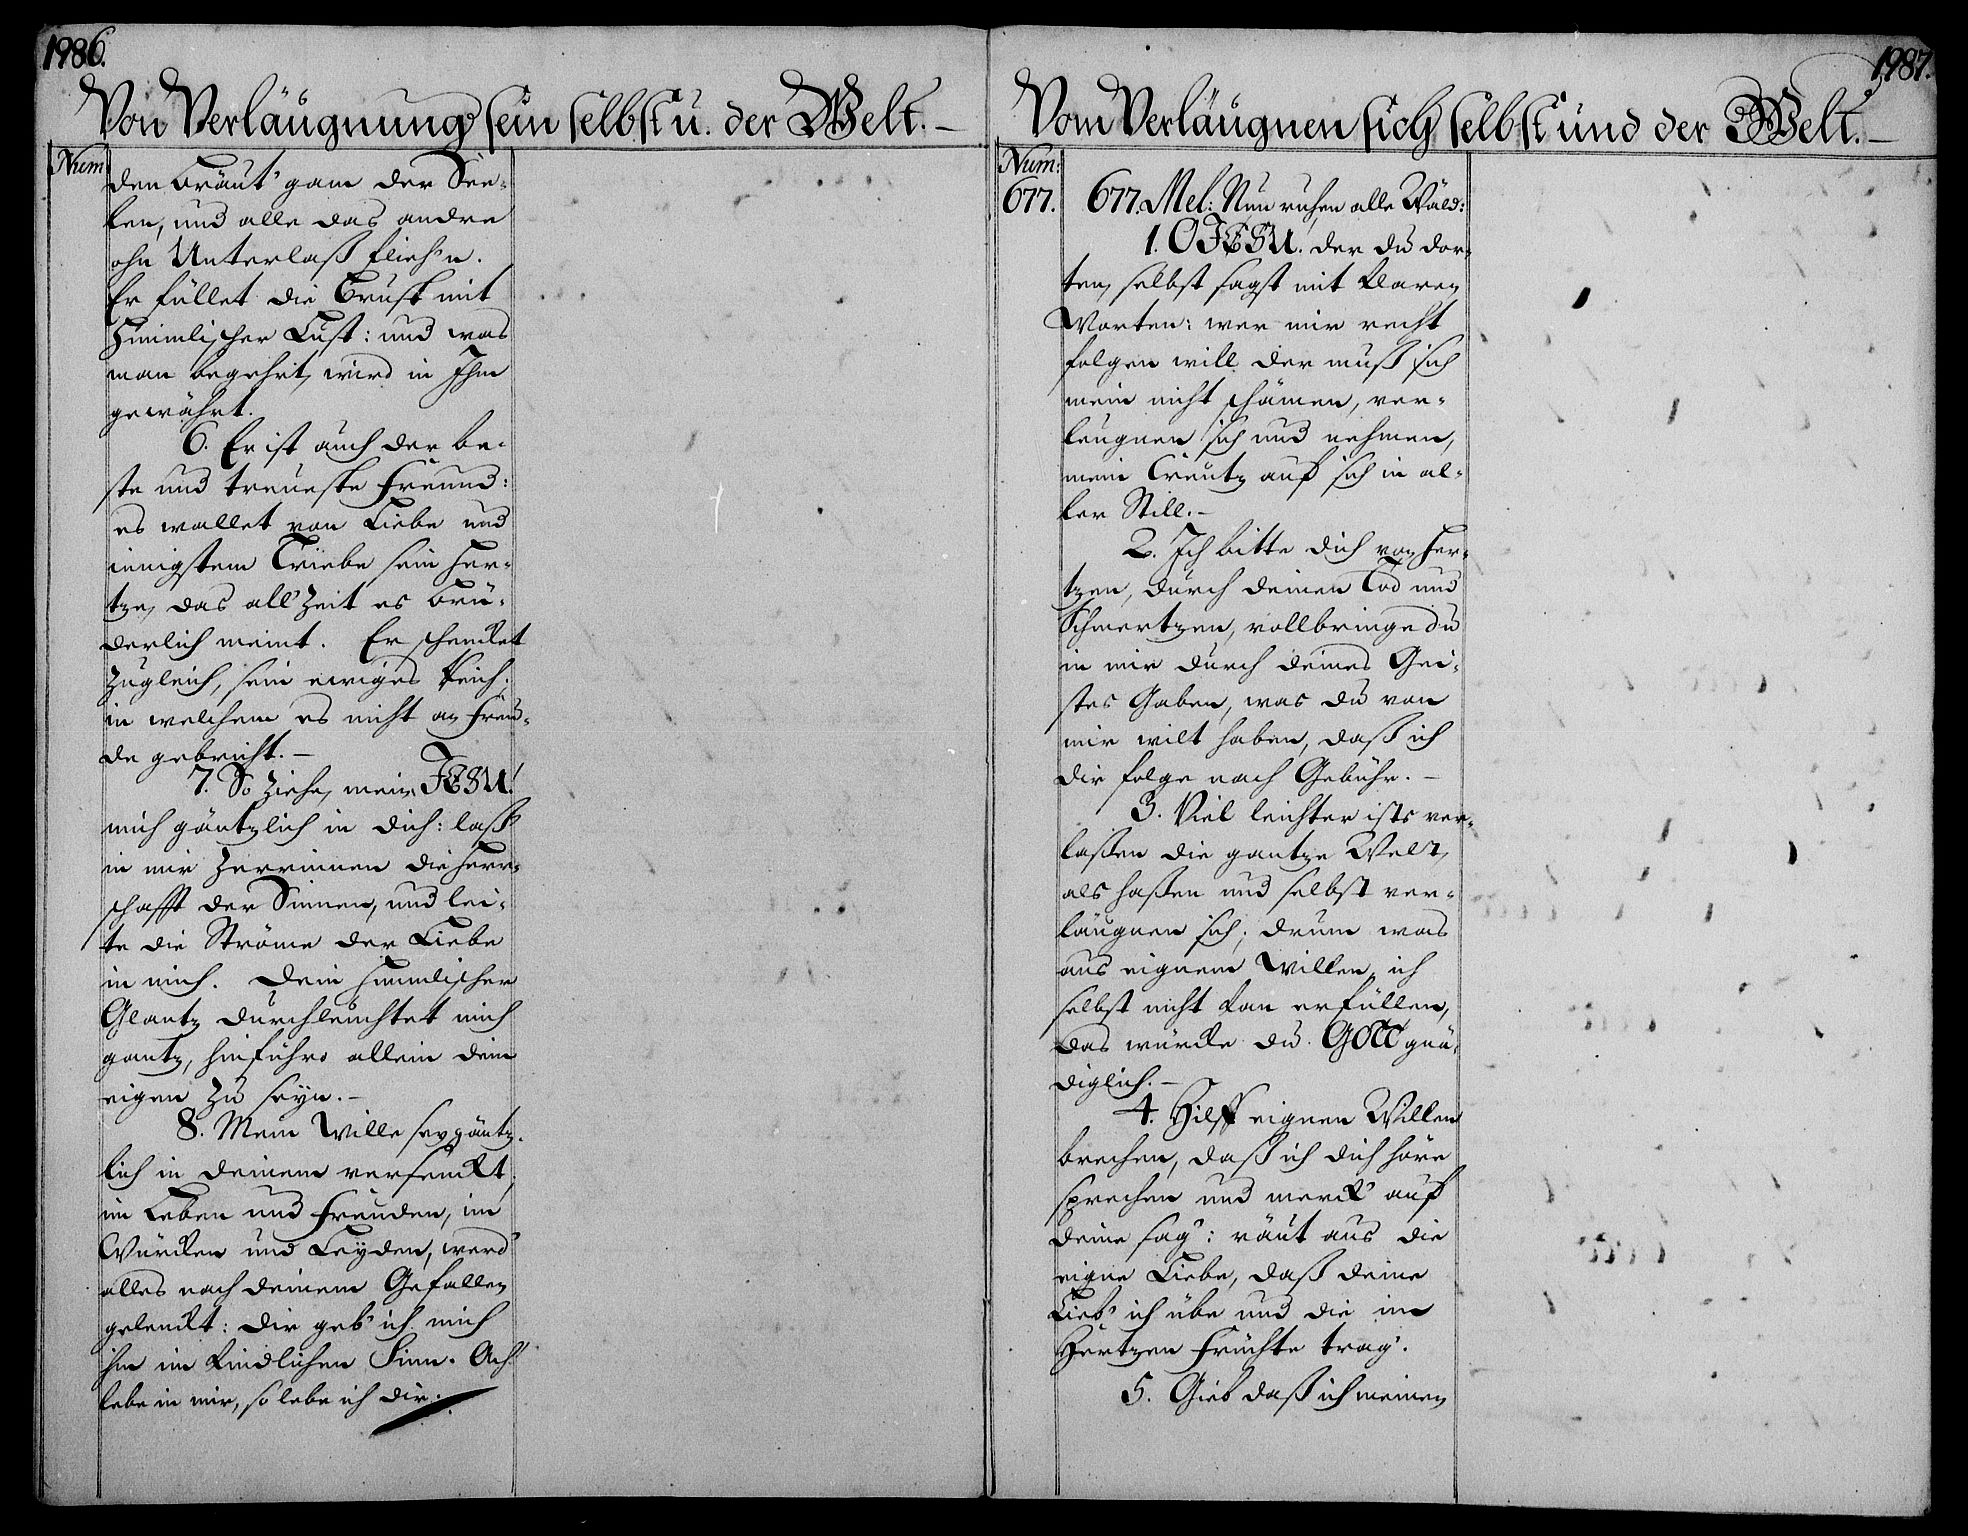 1986.
Von Verläugnung sein selbst u. der Welt. –
Num
den Bräut'gam der See-
len, und alle das andre
ohn Unterlaß flieh'n.
Er füllet die Brust mit
Himmlischer Lust: und was
man begehrt, wird in Ihm
gewährt.
6. Er ist auch der be-
ste und treueste Freund:
es wallet von Liebe und
innigstem Triebe sein Her-
tze, das all'Zeit es brü-
derlich meint. Er schencket
zugleich, sein ewiges Reich.
in welchem es nicht an Freu-
de gebricht. –
7. So ziehe, mein JESU!
mich gäntzlich in dich: laß
in mir zerrinnen die Herr-
schafft der Sinnen, und lei-
te die Ströme der Liebe
in mich. Dein himmlischer
Glantz durchleuchtet mich
gantz, hinführo allein dein
eigen zu seyn. –
8. Mein Wille sey gäntz-
lich in deinem versenckt,
im Leben und Freuden, im
Würcken und Leyden, werd'
alles nach deinem Gefallen
gelenckt: dir geb' ich mich
hin im kindlichen Sinn. Ach!
lebe in mir, so lebe ich dir.
1987.
Vom Verläugnen sich selbst und der Welt. –
Num:
677.
677. Mel: Nun ruhen alle Wäld:
1. O JESU. der du dor-
ten, selbst sagst mit klaren
Worten: wer mir recht
folgen will der muß sich
mein nicht schämen, ver-
leugnen sich und nehmen,
mein Creutz auf sich in al-
ler Still. –
2. Ich bitte dich von Her-
tzen, durch deinen Tod und
Schmertzen, vollbringe du
in mir durch deines Gei-
stes Gaben, was du von
mir wilt haben, daß ich
dir folge nach Gebühr. –
3. Viel leichter ists ver-
laßen die gantze Welt,
als haßen und selbst ver-
läugnen sich; drum was
aus eignem Willen, ich
selbst nicht kan erfüllen,
das würcke du. GOTT gnä-
diglich. –
4. Hilff eignen Willen
brechen, daß ich dich höre
sprechen und merck' auf
deine sag': räut aus die
eigne Liebe, daß deine
Lieb' ich übe und die im
Hertzen Früchte trag'.
5. Gieb daß ich meinen